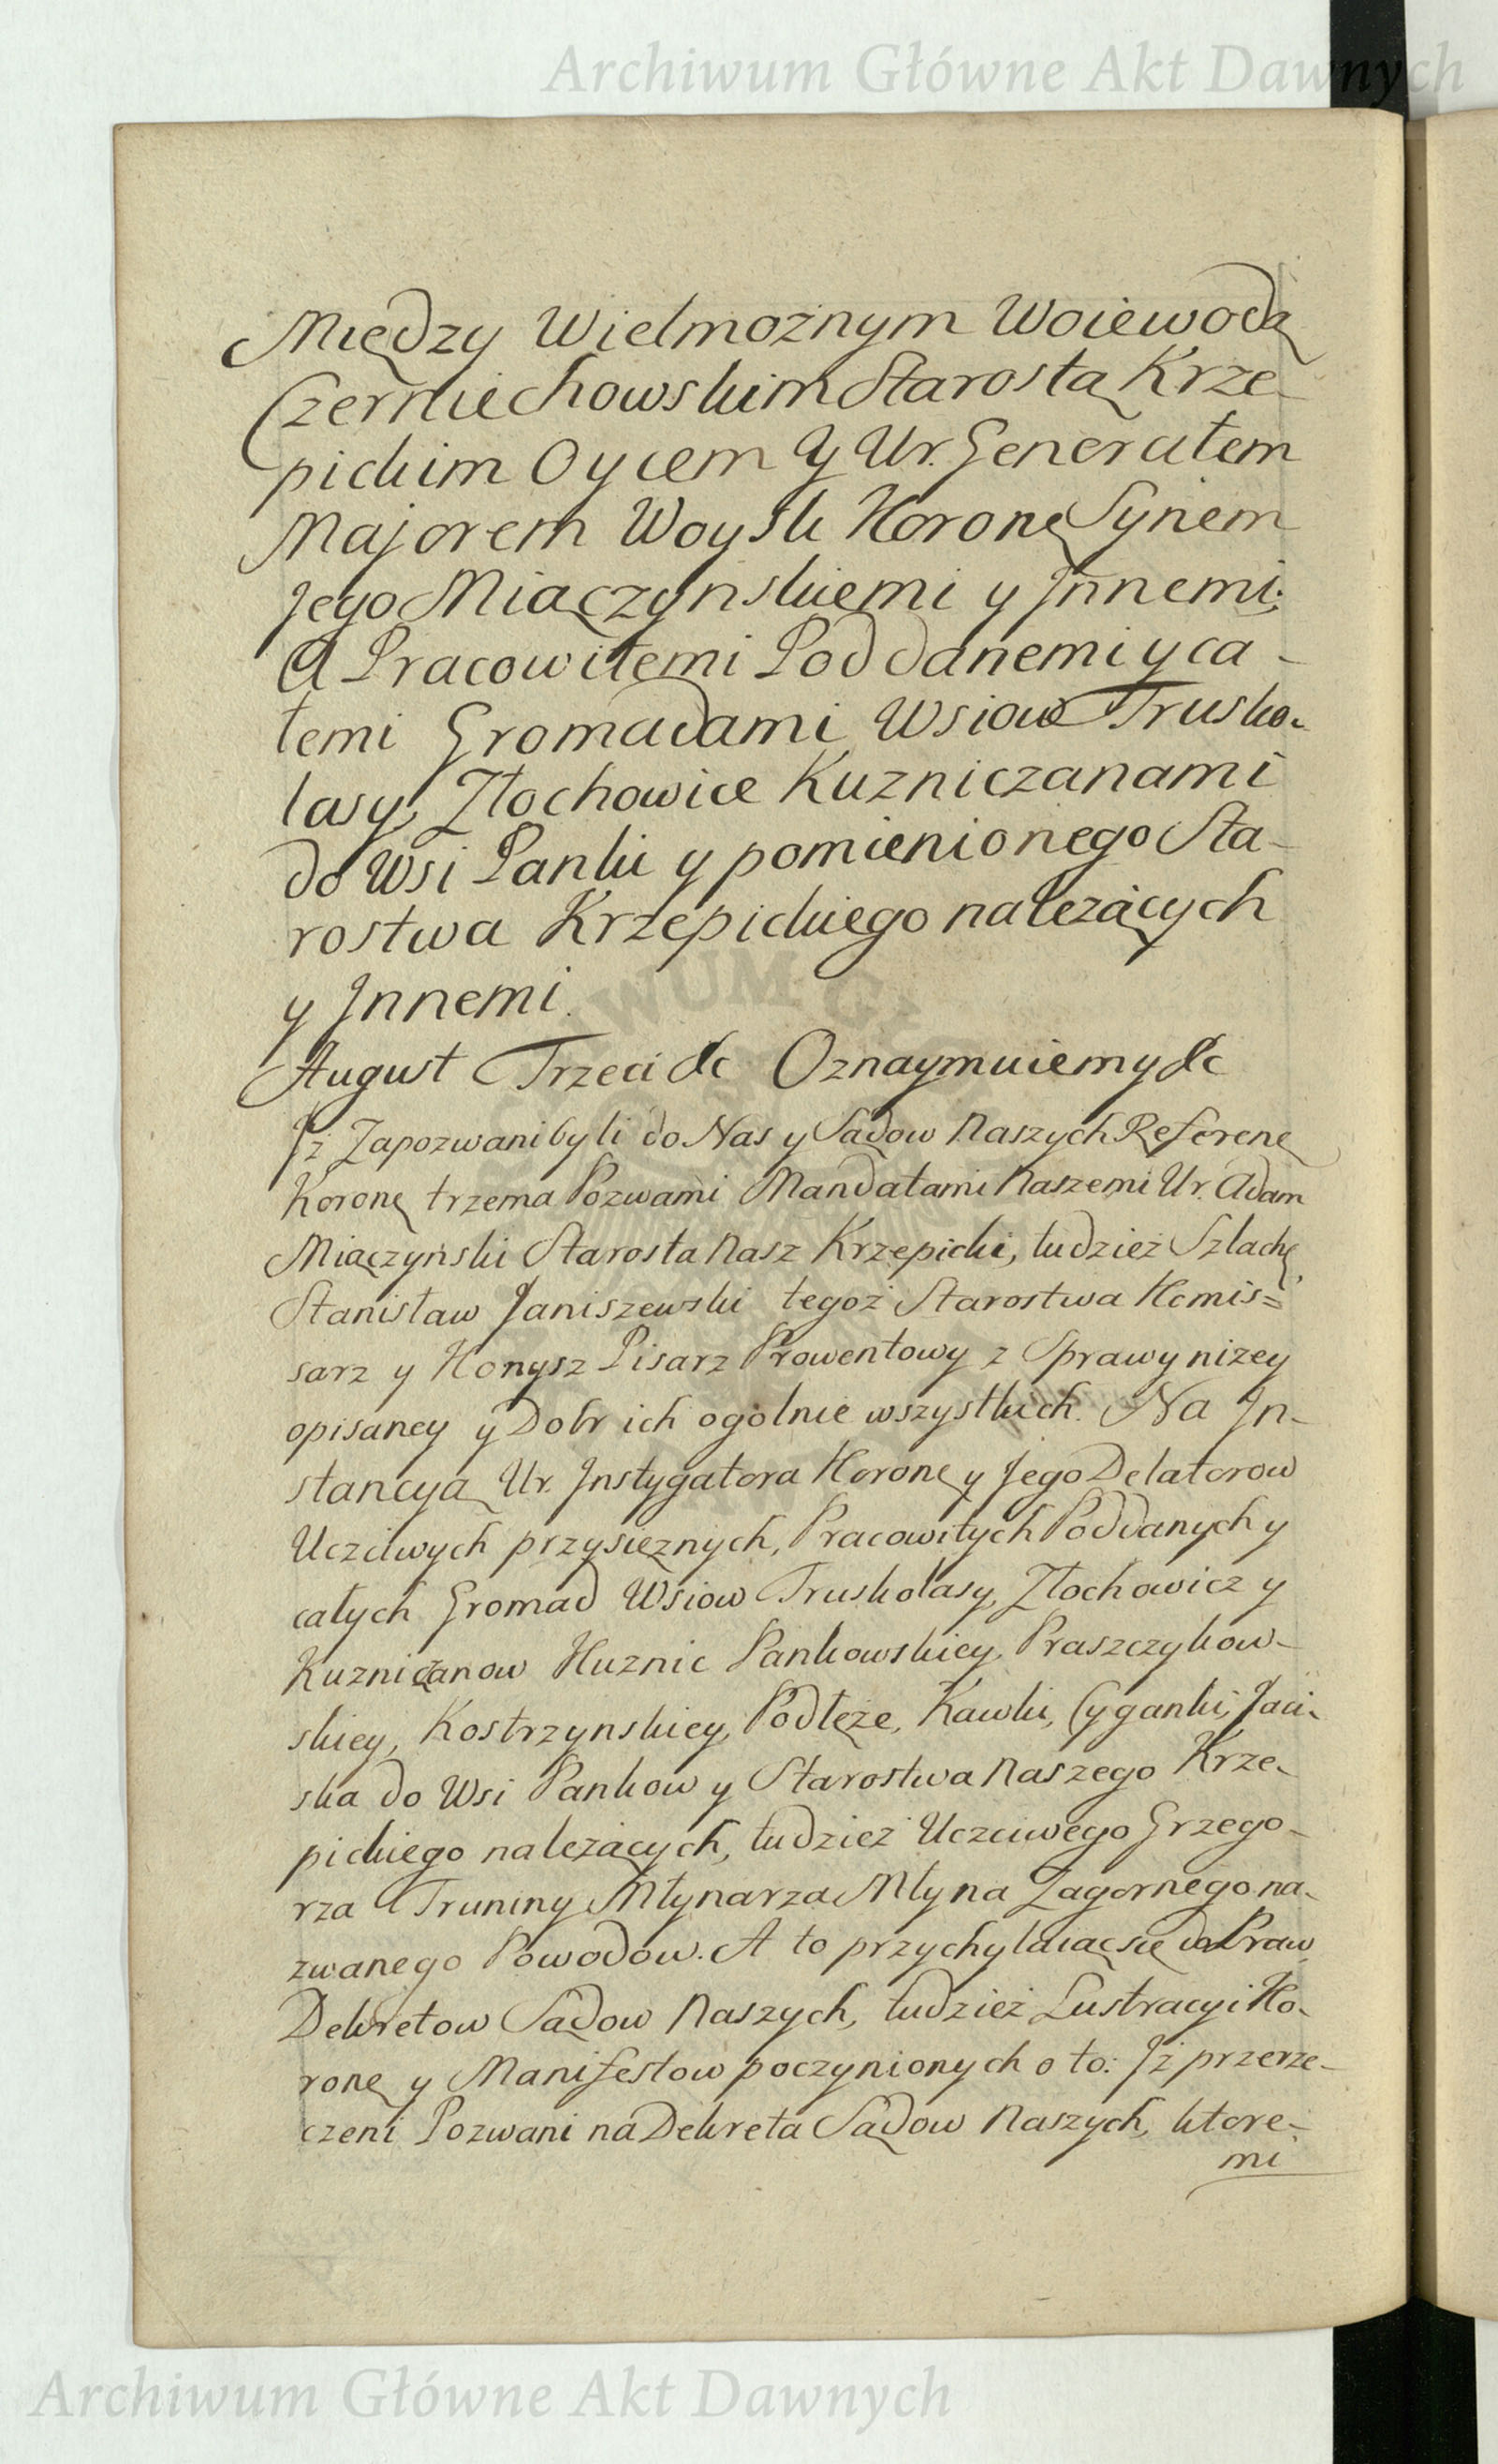 Archiwum Główne Akt Dawnych
Między Wielmożnym Woiewodą
Czerniechowskim Starostą Krze-
pickim Oycem Y Ur. Generałem
Majorem Woysk Koronę Synem
Jego Miączyńskiemi y Jnnemi;
A Pracowitemi Poddanemi y ca-
łemi Gromadami Wsiow Trusko-
lasy, Złochowice Kuzniczanami
do Wsi Panki y pomienionego Sta-
rostwa Krzepickiego należących
y Jnnemi.
August Trzeci &c Oznaymuiemy &c
Jż Zapozwani byli do Nas y Sądow Naszych Referenę
Koronę trzema Pozwami Mandatami Naszemi Ur. Adam
Miączyński Starosta Nasz Krzepicki, tudzież Szlachę
Stanisław Janiszewski tegoż Starostwa Komis=
sarz y Konysz Pisarz Prowentowy z Sprawy niżey
opisaney y Dobr ich ogolnie wszystkich. Na Jn-
stancyą Ur. Jnstygatora Koronę y Jego Delatorow
Uczciwych przysięznych, Pracowitych Poddanych y
całych Gromad Wsiow Truskolasy, Złochowicz y
Kuzniczanow Kuznic Pankowskiey, Praszczykow-
skiey, Kostrzynskiey, Podłęże, Kawki, Cyganki, Jaci-
ska do Wsi Pankow y Starostwa Naszego Krze-
pickiego należących, tudzież Uczciwego Grzego-
rza Truniny Młynarza Młyna Zagornego na-
zwanego Powodow. A to przychylaiąc się do Praw
Dekretow Sądow Naszych, tudzież Lustracyi Ko-
ronę y Manifestow poczynionych o to: Jż przerze-
czeni Pozwani na Dekreta Sądow Naszych, ktore-
mi
Archiwum Główne Akt Dawnych